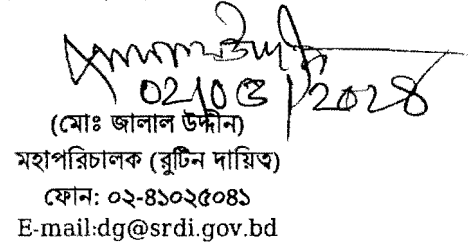 ০২/০৩/২০২৪
(মোঃ জালাল উদ্দীন)
মহাপরিচালক (রুটিন দায়িত্ব)
ফোন: ০২-৪১০২৫০৪১
E-mail:dg@srdi.gov.bd